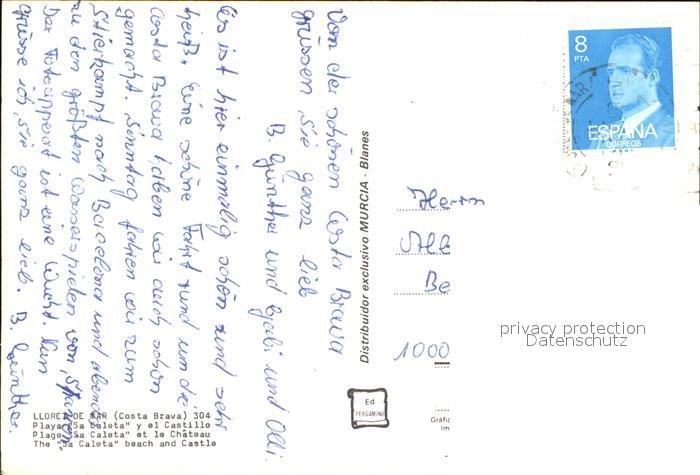 Von der schönen Costa Brava
grüssen Sie ganz lieb
B. Günther und Gabi und Olli.
Es ist hier einmalig schön und sehr
heiß. Eine schöne Fahrt rund um die
Costa Brava haben wir auch schon
gemacht. Sonntag fahren wir zum
Stierkampf nach Barcelona und abends
zu den größten Wasserspielen von Spanien.
Der Fotoapperat ist eine Wucht. Nun
grüsse ich Sie ganz lieb. B. Günther.
LLORET DE MAR (Costa Brava) 304
Playa "Sa Caleta" y el Castillo
Plage "Sa Caleta" et le Château
The "Sa Caleta" beach and Castle
Distribuidor exclusivo MURCIA - Blanes
Ed
PERGAMINO
Gráfic
Im
8
PTA
ESPAÑA
CORREOS
Herrn
Be
1000
privacy protection
Datenschutz